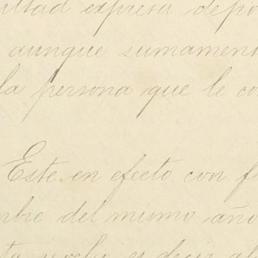 ultad expresa depo
aunque sumament
la persona que le co
Este en efecto con f
mbre del mismo año